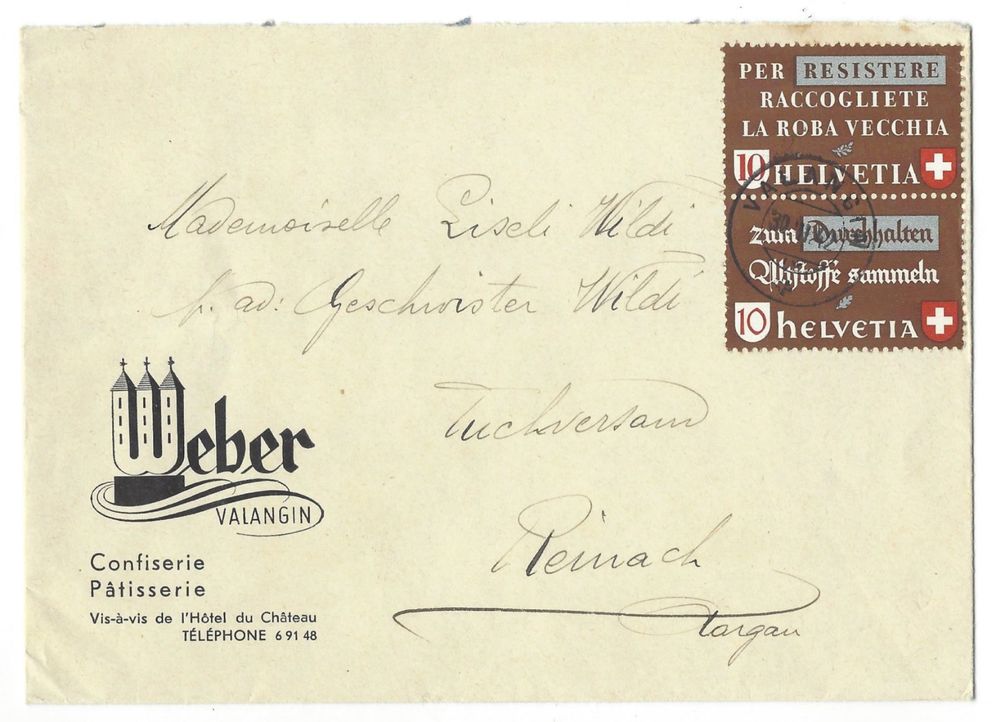 PER RESISTERE
RACCOGLIETE
LA ROBA VECCHIA
10 HELVETIA
zum Durchhalten
Altstoffe sammeln
10 HELVETIA
VALANGIN
Mademoiselle Liseli Wildi
p. ad: Geschwister Wildi
Tuchversand
Reinach
Aargau
Weber
VALANGIN
Confiserie
Pâtisserie
Vis-à-vis de l'Hôtel du Château
TÉLÉPHONE 6 91 48